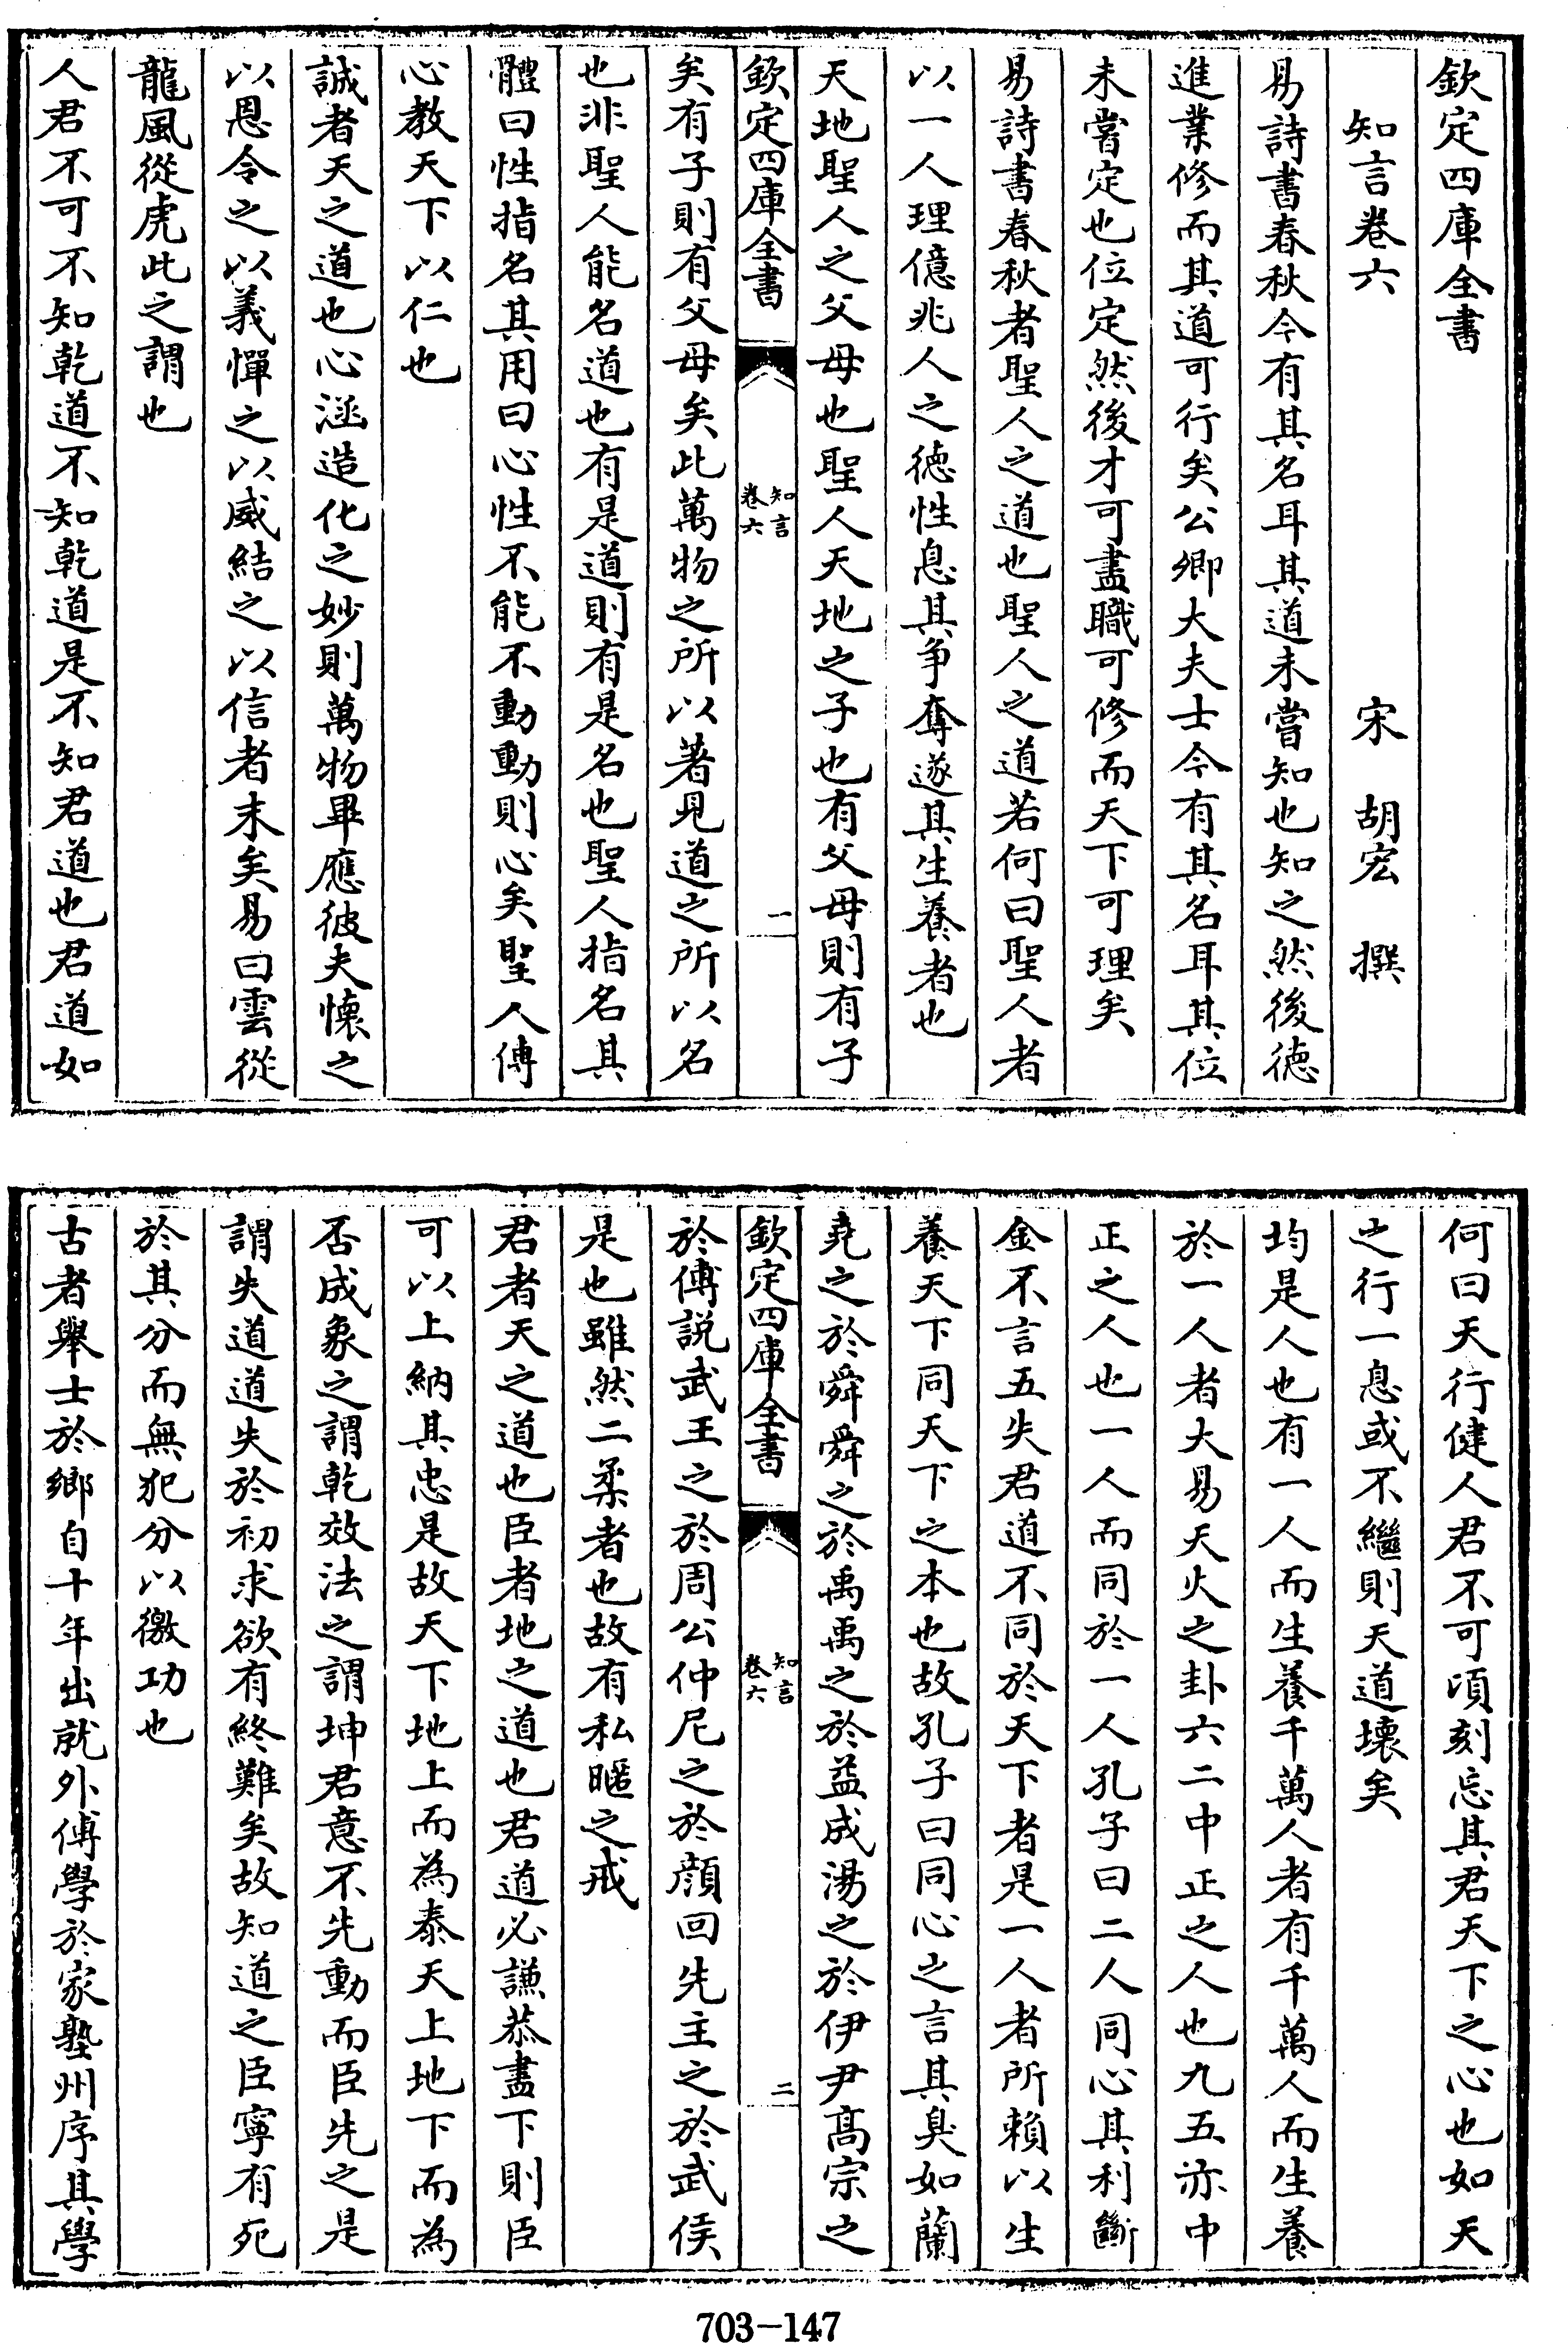 欽定四庫全書
知言卷六
宋 胡宏 撰
易詩書春秋今有其名耳其道未嘗知也知之然後德
進業修而其道可行矣公卿大夫士今有其名耳其位
未嘗定也位定然後才可盡職可修而天下可理矣
易詩書春秋者聖人之道也聖人之道若何曰聖人者
以一人理億兆人之德性息其爭奪遂其生養者也
天地聖人之父母也聖人天地之子也有父母則有子
欽定四庫全書
知言
卷六
一
矣有子則有父母矣此萬物之所以著見道之所以名
也非聖人能名道也有是道則有是名也聖人指名其
體曰性指名其用曰心性不能不動動則心矣聖人傳
心教天下以仁也
誠者天之道也心涵造化之妙則萬物畢應彼夫懷之
以恩令之以義憚之以威結之以信者末矣易曰雲從
龍風從虎此之謂也
人君不可不知乾道不知乾道是不知君道也君道如
何曰天行健人君不可頃刻忘其君天下之心也如天
之行一息或不繼則天道壞矣
均是人也有一人而生養千萬人者有千萬人而生養
於一人者大易天火之卦六二中正之人也九五亦中
正之人也一人而同於一人孔子曰二人同心其利斷
金不言五失君道不同於天下者是一人者所賴以生
養天下同天下之本也故孔子曰同心之言其臭如蘭
堯之於舜舜之於禹禹之於益成湯之於伊尹高宗之
欽定四庫全書
知言
卷六
二
於傅説武王之於周公仲尼之於顔回先主之於武侯
是也雖然二柔者也故有私暱之戒
君者天之道也臣者地之道也君道必謙恭盡下則臣
可以上納其忠是故天下地上而為泰天上地下而為
否成象之謂乾效法之謂坤君意不先動而臣先之是
謂失道道失於初求欲有終難矣故知道之臣寧有死
於其分而無犯分以徼功也
古者舉士於鄉自十年出就外傅學於家塾州序其學
703-147